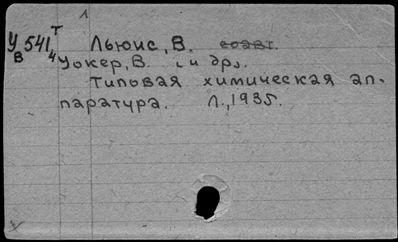 1
У 541 Т
В 4
Льюис, В. соавт.
Уокер, В. и др.
Типовая химическая ап-
паратура. Л., 1935.